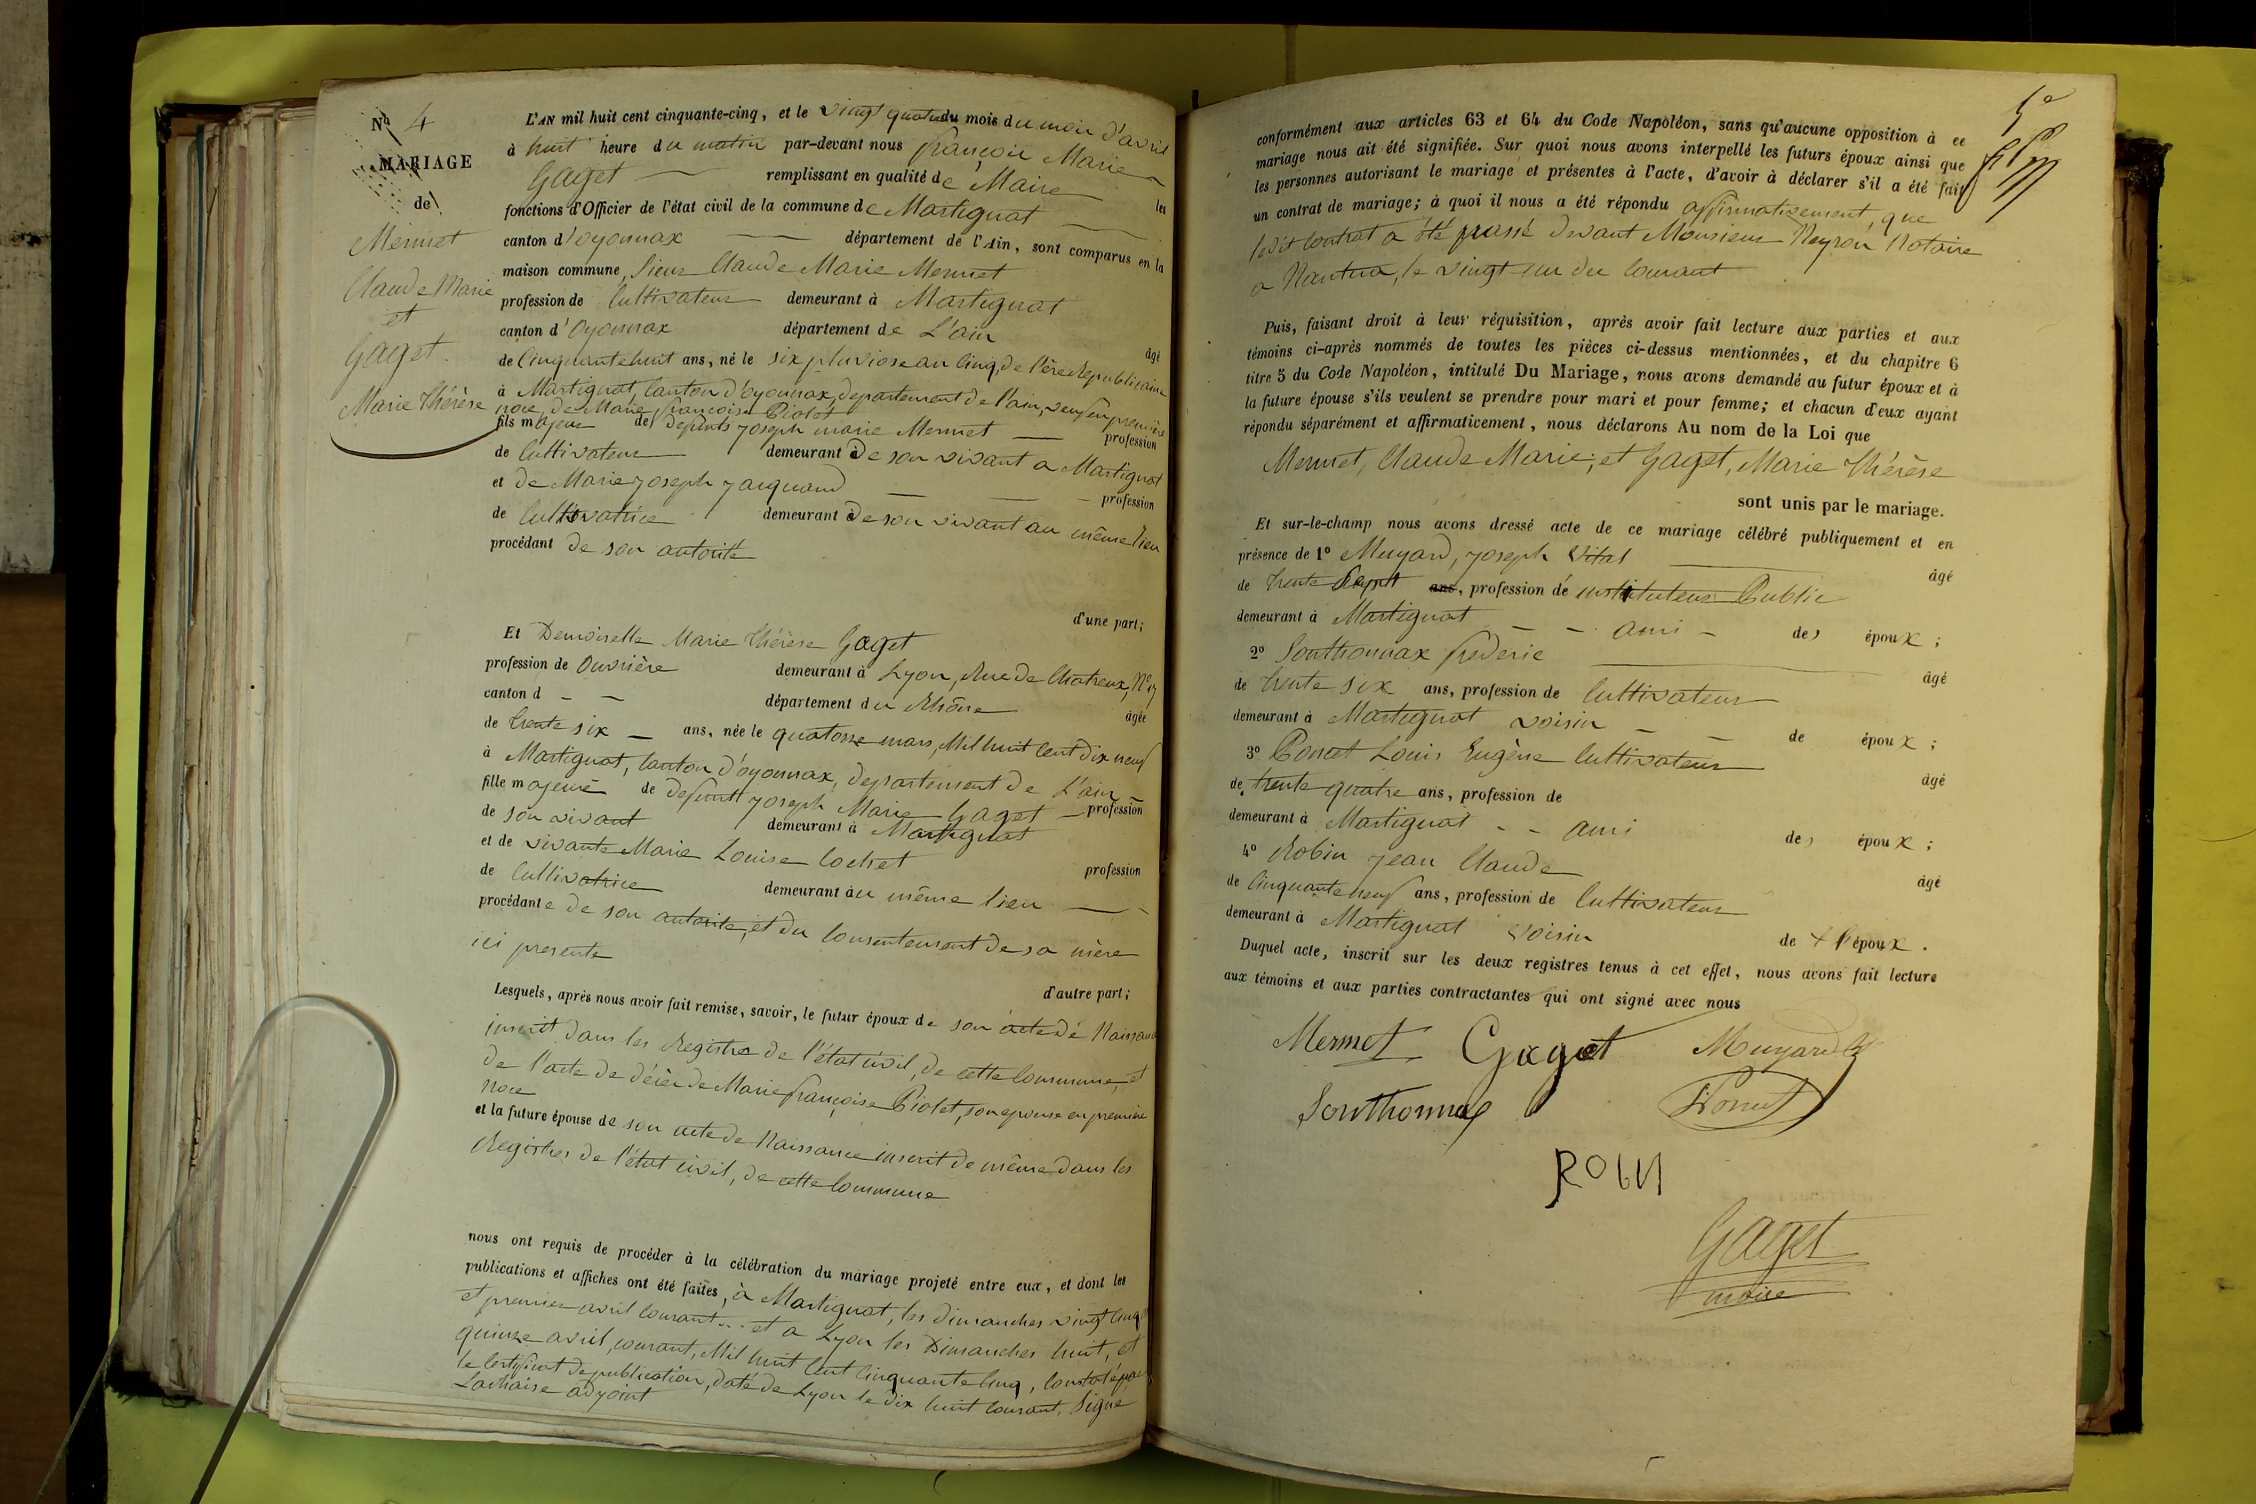 No 4
MARIAGE
de
Mermet
Claude Marie
et
Gaget
Marie Thérèse
L'AN mil huit cent cinquante-cinq, et le vingt quatre du mois du mois d'avril
à huit heure du matin par-devant nous françois Marie
Gaget remplissant en qualité de Maire les
fonctions d'Officier de l'état civil de la commune de Martignat
canton d'oyonnax département de l'Ain, sont comparus en la
maison commune, Sieur Claude Marie Mermet
profession de Cultivateur demeurant à Martignat
canton d'Oyonnax département de L'ain âgé
de Cinquante huit ans, né le six pluviose an Cinq, de l'ère Républicaine
à Martignat, Canton d'oyonnax, département de l'ain, veuf en première
noce, de Marie françoise Piolet
fils majeur de défunts joseph marie Mermet profession
de Cultivateur demeurant de son vivant a Martignat
et de Marie joseph jacquand profession
de Cultivatrice demeurant de son vivant au même lieu
procédant de son autorité
d'une part;
Et Demoiselle Marie Thérèse Gaget
profession de Ouvrière demeurant à Lyon, Rue de Chatreux, No 17
canton d département du Rhône âgée
de trente six ans, née le quatorze mars, Mil huit Cent Dix neuf
à Martignat, Canton d'oyonnax, département de L'ain
fille majeure de defunt joseph Marie Gaget profession
de son vivant demeurant à Martignat
et de vivante Marie Louise Cochet profession
de Cultivatrice demeurant au même lieu
procédante de son autorité, et du Consentement de sa mère
ici presente
d'autre part;
Lesquels, après nous avoir fait remise, savoir, le futur époux de son acte de Naissance
inscrit dans les Registre de l'état civil, de cette Commune, et
de l'acte de décès de Marie françoise Piolet, son epouse en premiere
noce
et la future épouse de son acte de Naissance inscrit de même dans les
Registres de l'état civil, de cette Commune
nous ont requis de procéder à la célébration du mariage projeté entre eux, et dont les
publications et affiches ont été faites, à Martignat, les dimanches vingt cinq
et premier avril courant et a Lyon les Dimanches huit, et
quinze avril, courant, Mil huit Cent Cinquante Cinq, Constaté par
le Certificat de publication, daté de Lyon le dix huit Courant, Signé
Lachaise adjoint
5e
conformément aux articles 63 et 64 du Code Napoléon, sans qu'aucune opposition à ce
mariage nous ait été signifiée. Sur quoi nous avons interpellé les futurs époux ainsi que
les personnes autorisant le mariage et présentes à l'acte, d'avoir à déclarer s'il a été fait
un contrat de mariage; à quoi il nous a été répondu affirmativement, que
ledit Contrat a été passé devant Monsieur Neyron Notaire
a Nantua, le vingt un du Courant
Puis, faisant droit à leur réquisition, après avoir fait lecture aux parties et aux
témoins ci-après nommés de toutes les pièces ci-dessus mentionnées, et du chapitre 6
titre 5 du Code Napoléon, intitulé Du Mariage, nous avons demandé au futur époux et à
la future épouse s'ils veulent se prendre pour mari et pour femme; et chacun d'eux ayant
répondu séparément et affirmativement, nous déclarons Au nom de la Loi que
Mermet, Claude Marie; et Gaget, Marie Thérèse
sont unis par le mariage.
Et sur-le-champ nous avons dressé acte de ce mariage célébré publiquement et en
présence de 1o Muyard, joseph Vital âgé
de trente Sept ans, profession de instituteur Public
demeurant à Martignat ami des époux;
2o Southonnax frederic âgé
de trente six ans, profession de Cultivateur
demeurant à Martignat voisin de époux;
3o Poncet Louis Eugène Cultivateur âgé
de trente quatre ans, profession de
demeurant à Martignat ami des époux;
4o Robin jean Claude âgé
de Cinquante neuf ans, profession de Cultivateur
demeurant à Martignat voisin de époux.
Duquel acte, inscrit sur les deux registres tenus à cet effet, nous avons fait lecture
aux témoins et aux parties contractantes qui ont signé avec nous
Mermet Gaget Muyard
Southonnax Poncet
Robin
Gaget
maire